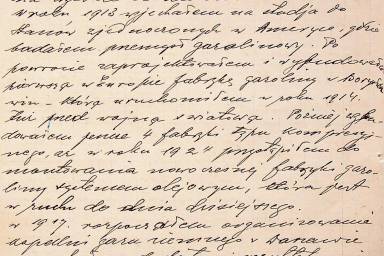 w roku 1913 wyjechałem na studja do
Stanów Zjednoczonych w Ameryce, gdzie
badałem przemysł gazolinowy. Po
powrocie zaprojektowałem i wybudowałem
pierwszą w Europie fabrykę gazoliny w Borysła-
wiu - którą uruchomiłem w roku 1914.
tuż przed wojną światową. Później wybu-
dowałem jeszcze 4 fabryki typu kompresyj-
nego, aż w roku 1924 przystąpiłem do
montowania nowoczesnej fabryki gazo-
liny systemem olejowym, która jest
w ruchu do dnia dzisiejszego.
w 1917. rozpocząłem organizowanie
kopalni gazu ziemnego w Daszawie